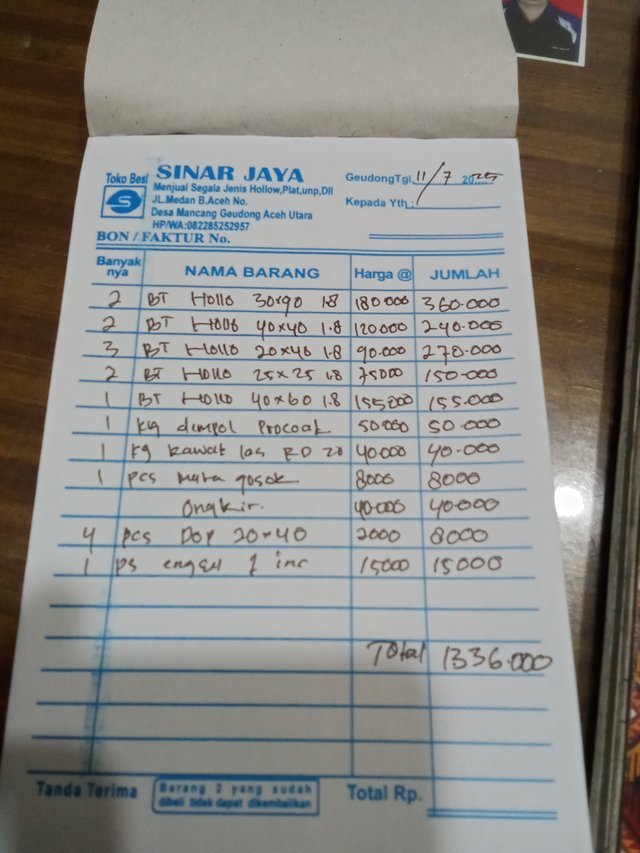 Toko Besi SINAR JAYA
Menjual Segala Jenis Hollow,Plat,unp,Dll
JL.Medan B.Aceh No.
Desa Mancang Geudong Aceh Utara
HP/WA:082285252957
GeudongTgl, 11/7 2025
Kepada Yth :
BON / FAKTUR No.
Banyak nya NAMA BARANG Harga @ JUMLAH
2 BT Hollo 30x90 1.8 180000 360.000
2 BT Hollo 40x40 1.8 120000 240.000
3 BT Hollo 20x40 1.8 90.000 270.000
2 BT Hollo 25x25 1.8 75000 150.000
1 BT Hollo 40x60 1.8 155000 155.000
1 kg dempol Procoat 50000 50.000
1 kg kawat las RD 20 40.000 40.000
1 pcs mata gosok 8000 8000
Ongkir. 40.000 40000
4 pcs Dop 20x40 2000 8000
1 ps engsel 1 inc 15000 15000
Total 1336.000
Tanda Terima
Barang 2 yang sudah
dibeli tidak dapat dikembalikan
Total Rp.